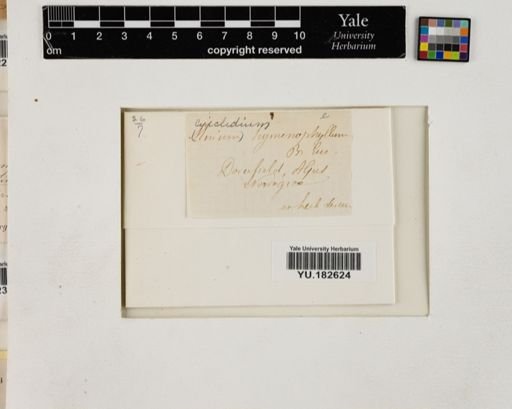 0 1 2 3 4 5 6 7 8 9 10
cm copyright reserved
Yale
University
Herbarium
Cyclidium
(Mnium) hymenophyllum
Br. Eur.
Dovrefield, Alpes
Norvegiae
in herb
Yale University Herbarium
YU.182624